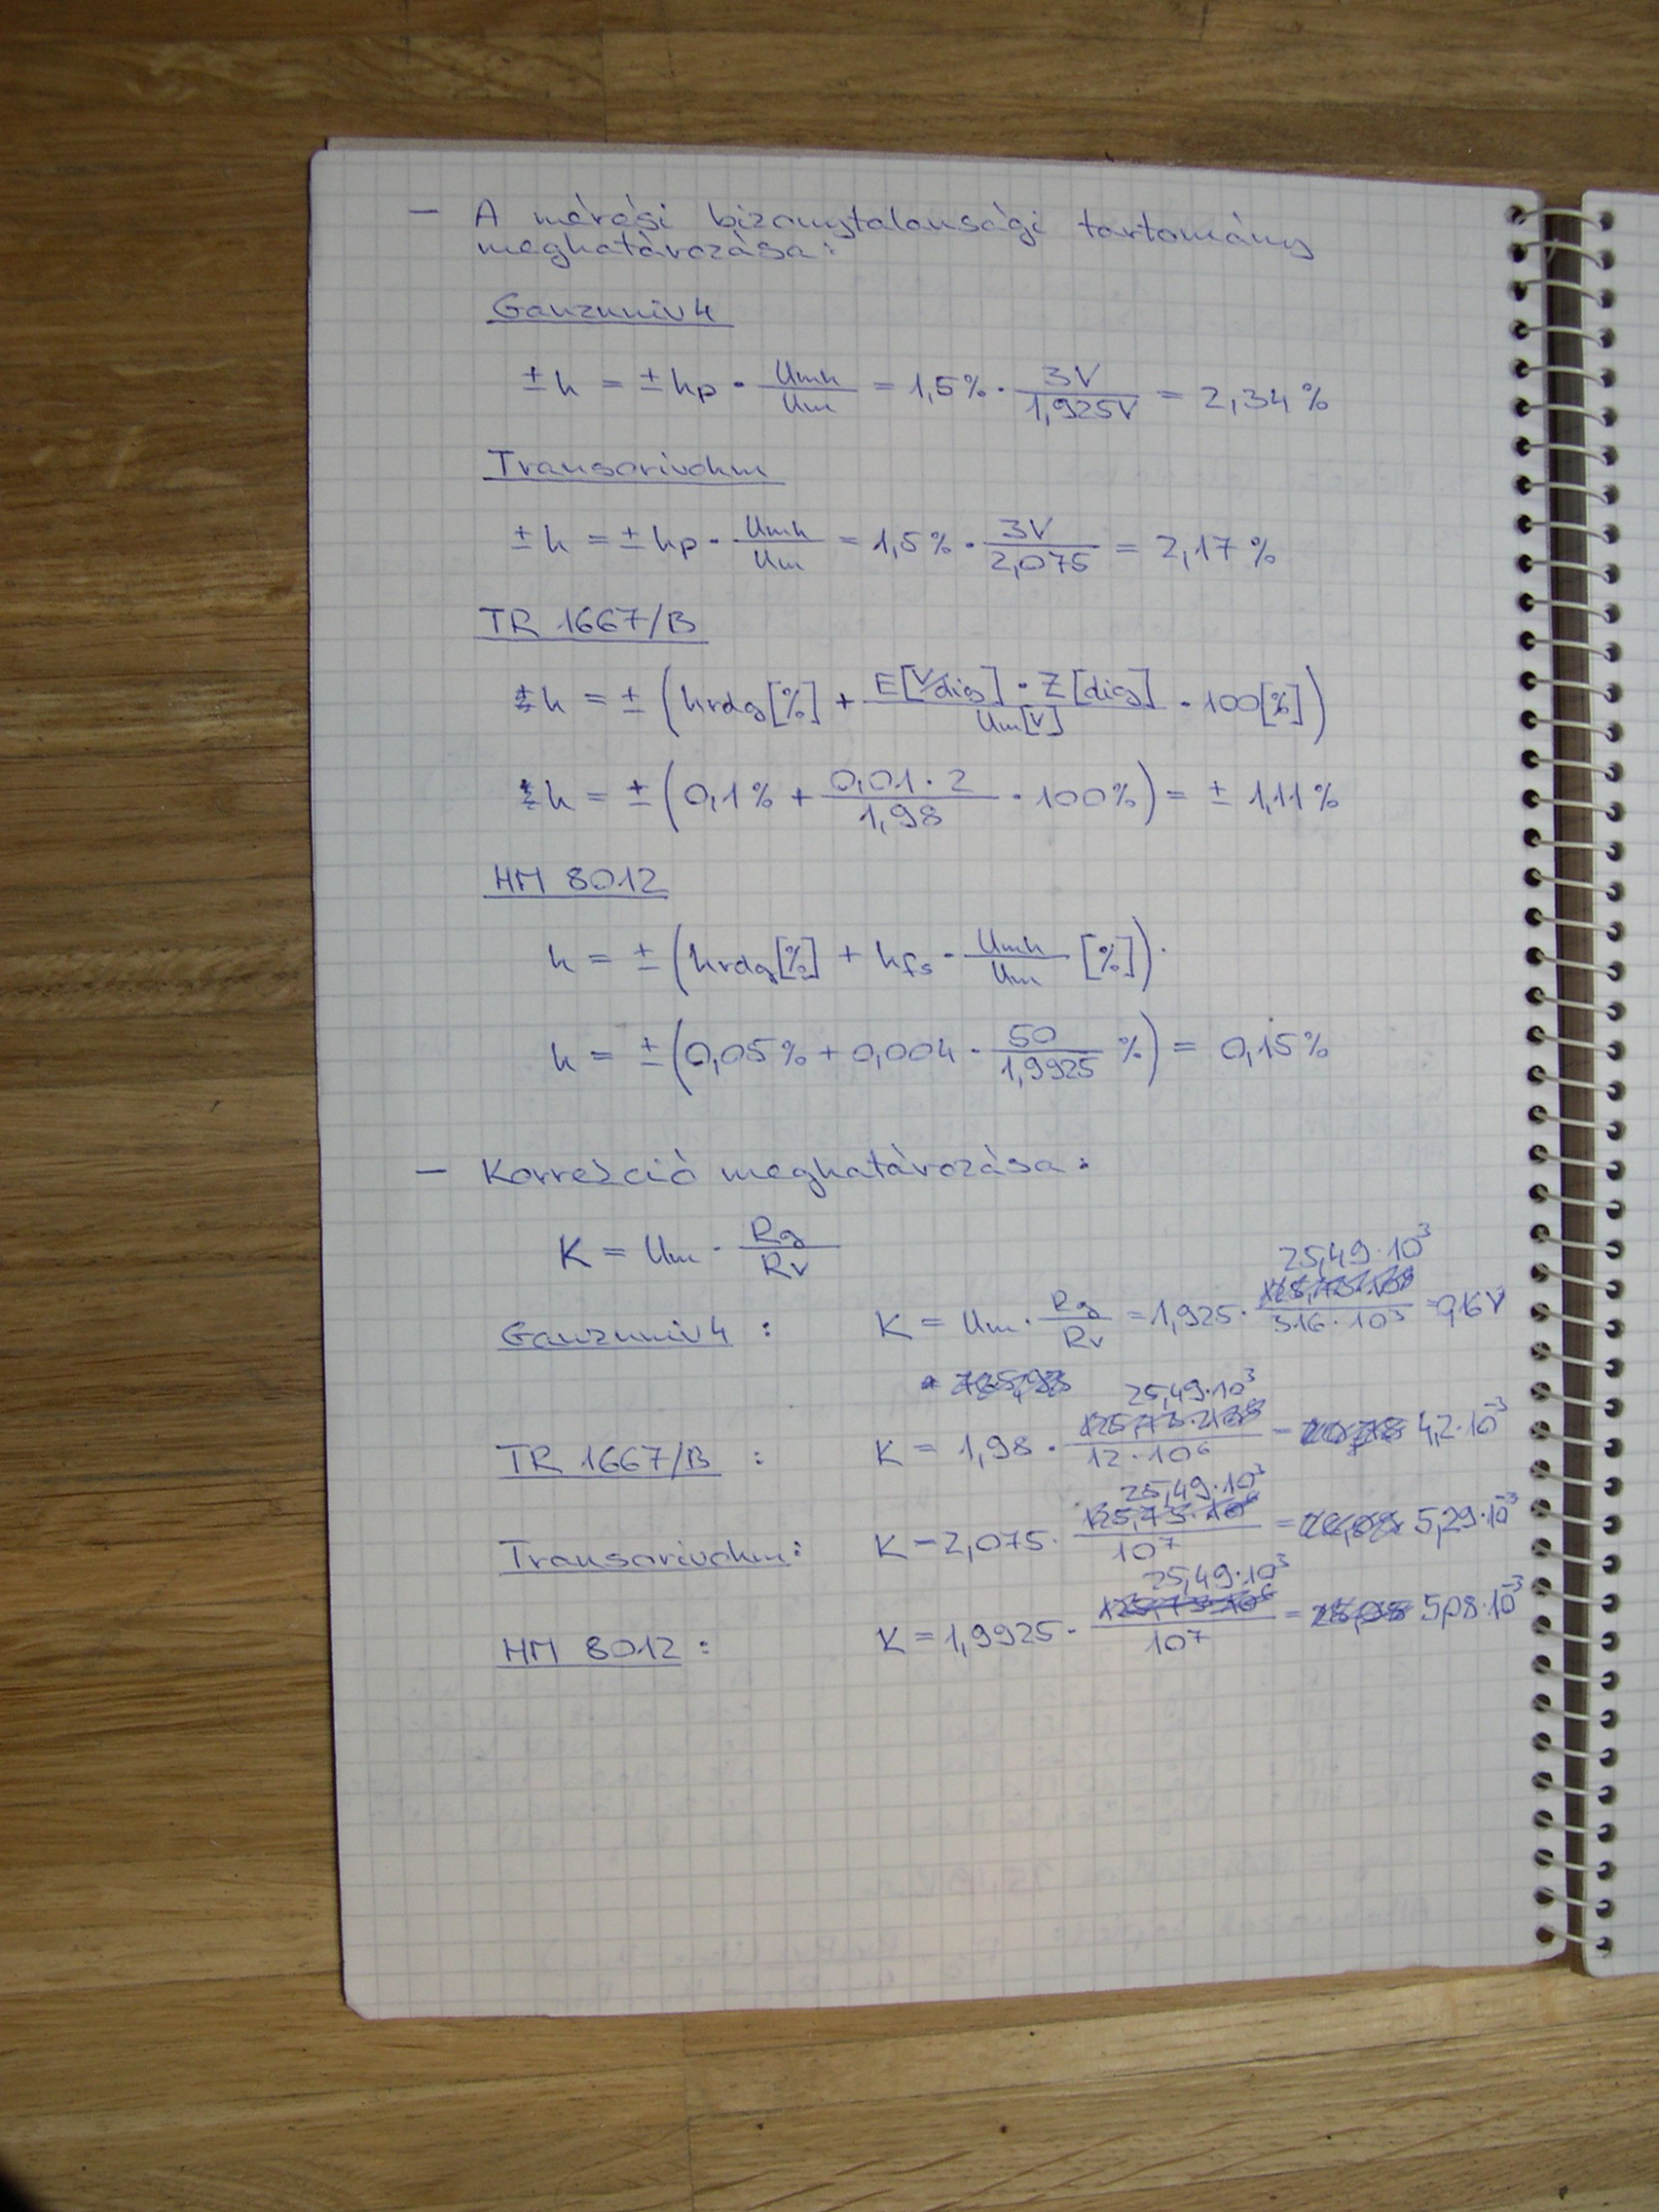 — A mérési bizonytalansági tartomány
meghatározása:
Ganzuniv 4
± h = ± hp · Umh / Um = 1,5% · 3V / 1,925V = 2,34 %
Transorivohm
± h = ± hp · Umh / Um = 1,5% · 3V / 2,075 = 2,17 %
TR 1667/B
± h = ± (hrdg[%] + E[V/dig] · Z[dig] / Um[V] · 100[%])
± h = ± (0,1% + 0,01 · 2 / 1,98 · 100%) = ± 1,11%
HM 8012
h = ± (hrdg[%] + hfs · Umh / Um [%])
h = ± (0,05% + 0,004 · 50 / 1,9925 %) = 0,15%
— Korrekció meghatározása:
K = Um · Rg / Rv
Ganzuniv 4 : K = Um · Rg / Rv = 1,925 · 25,49·10³ / 316·10³ = 0,16V
TR 1667/B : K = 1,98 · 25,49·10³ / 12·10⁶ = 4,2·10⁻³
Transorivohm: K = 2,075 · 25,49·10³ / 10⁷ = 5,29·10⁻³
HM 8012 : K = 1,9925 · 25,49·10³ / 10⁷ = 5,08·10⁻³